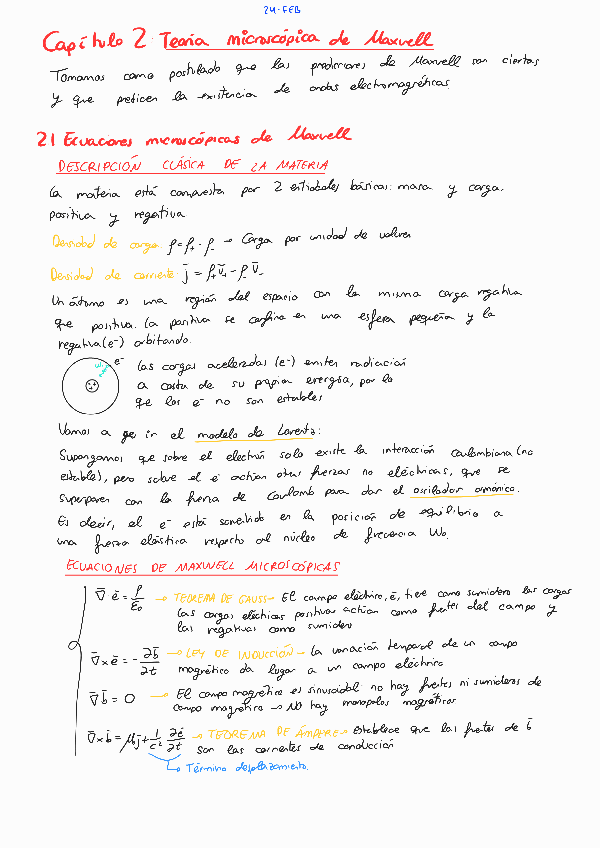 24-FEB
Capítulo 2. Teoría microscópica de Maxwell
Tomamos como postulado que las predicciones de Maxwell son ciertas
y que predicen la existencia de ondas electromagnéticas.
2.1 Ecuaciones microscópicas de Maxwell
DESCRIPCIÓN CLÁSICA DE LA MATERIA
La materia está compuesta por 2 entidades básicas: masa y carga,
positiva y negativa
Densidad de carga ρ=ρ₊-ρ₋ → Carga por unidad de volumen
Densidad de corriente j̄ = ρ₊v̄₊-ρ₋v̄₋
Un átomo es una región del espacio con la misma carga negativa
que positiva. La positiva se confina en una esfera pequeña y la
negativa (e⁻) orbitando.
e⁻ Las cargas aceleradas (e⁻) emiten radiación
a costa de su propia energía, por lo
que los e⁻ no son estables
Vamos a ir en el modelo de Lorentz:
Supongamos que sobre el electrón solo existe la interacción coulombiana (no
estable), pero sobre el e⁻ actúan otras fuerzas no eléctricas, que se
superponen con la fuerza de Coulomb para dar el oscilador armónico.
Es decir, el e⁻ está sometido en la posición de equilibrio a
una fuerza elástica respecto al núcleo de frecuencia W₀.
ECUACIONES DE MAXWELL MICROSCÓPICAS
∇̄ ē = ρ/ε₀ → TEOREMA DE GAUSS → El campo eléctrico, ē, tiene como sumidero las cargas
Las cargas eléctricas positivas actúan como fuentes del campo y
las negativas como sumidero
∇̄ × ē = -∂b̄/∂t → LEY DE INDUCCIÓN → La variación temporal de un campo
magnético da lugar a un campo eléctrico
∇̄ b̄ = 0 → El campo magnético es sinusoidal no hay fuentes ni sumideros de
campo magnético → NO hay monopolos magnéticos
∇̄ × b̄ = μ₀j̄ + 1/c² ∂ē/∂t → TEOREMA DE ÁMPERE → Establece que las fuentes de b̄
son las corrientes de conducción
↳ Término desplazamiento.